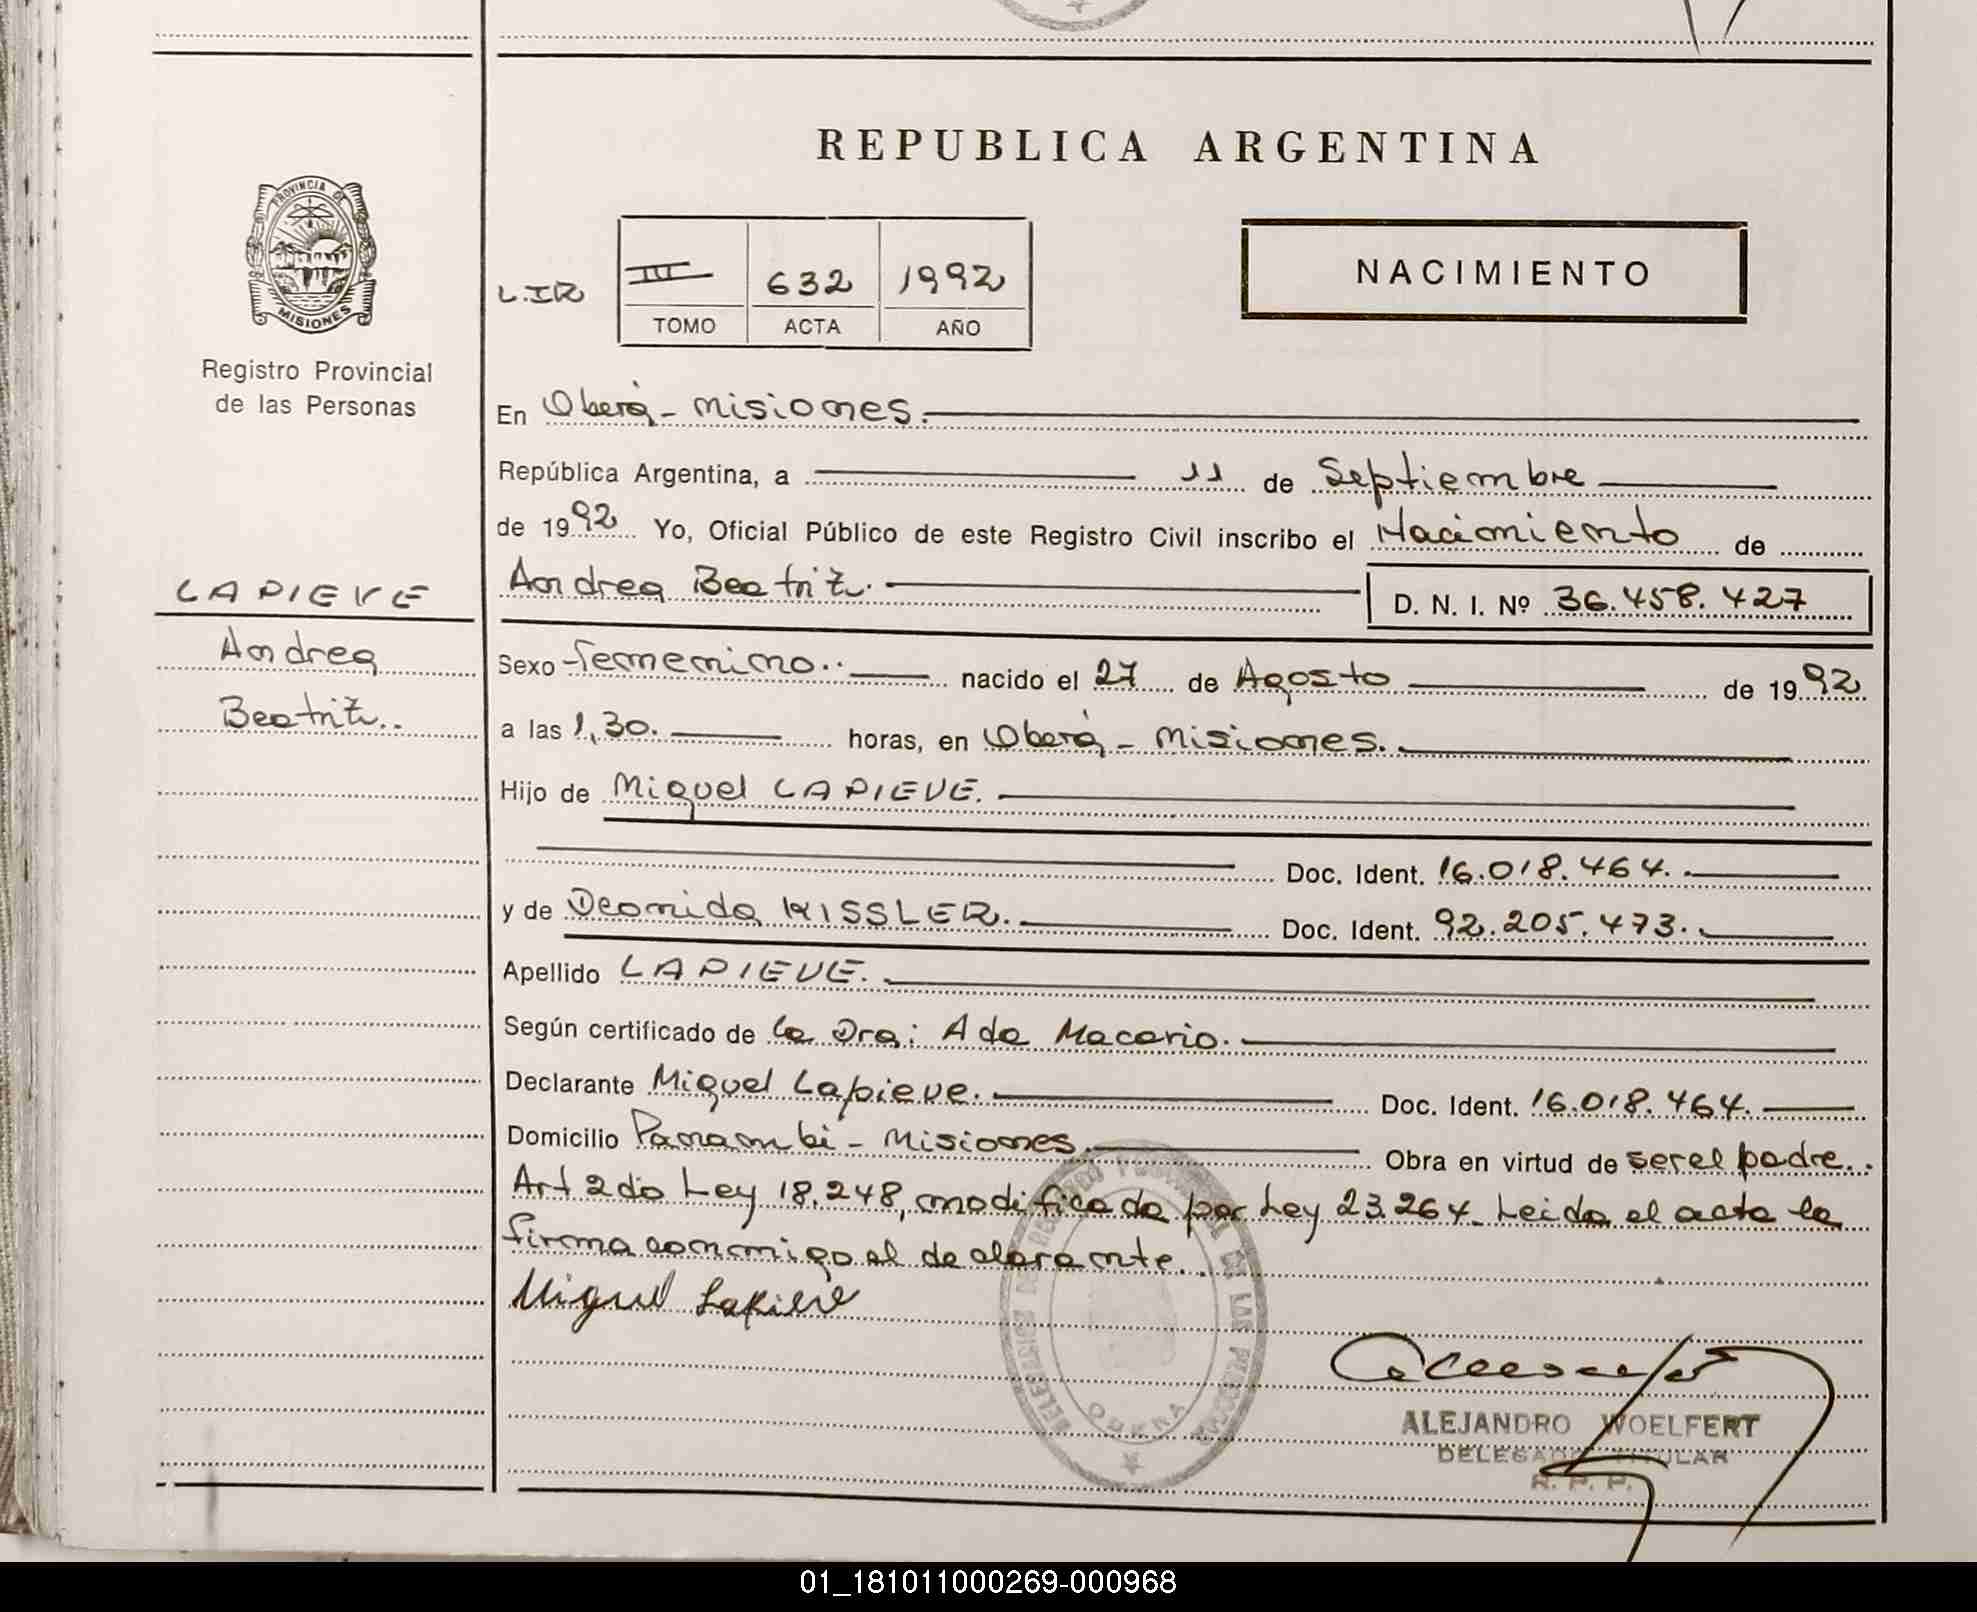 REPUBLICA ARGENTINA
PROVINCIA DE
MISIONES
Registro Provincial
de las Personas
L.IR
III 632 1992
TOMO ACTA AÑO
NACIMIENTO
En Oberá - Misiones.
República Argentina, a 11 de Septiembre
de 1992 Yo, Oficial Público de este Registro Civil inscribo el Nacimiento de
LAPIEVE
Andrea
Beatriz..
Andrea Beatriz. D. N. I. Nº 36.458.427
Sexo Femenino.. nacido el 27 de Agosto de 1992
a las 1,30. horas, en Oberá - Misiones.
Hijo de Miguel LAPIEVE.
Doc. Ident. 16.018.464.
y de Deonida KISSLER. Doc. Ident. 92.205.473.
Apellido LAPIEVE.
Según certificado de la Dra: Ada Macario.
Declarante Miguel Lapieve. Doc. Ident. 16.018.464.
Domicilio Panambí - Misiones. Obra en virtud de ser el padre..
Art 2do Ley 18.248, modificada por Ley 23.264. Leida el acta la
firma conmigo el declarante..
Miguel Lapieve
DE LAS PERSONAS
ALEJANDRO WOELFERT
DELEGADO TITULAR
R. P. P.
01_181011000269-000968